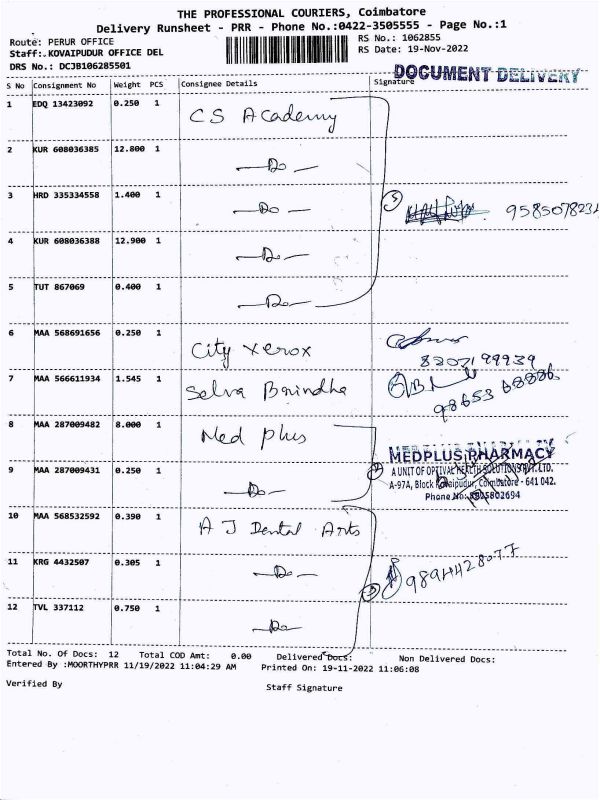 THE PROFESSIONAL COURIERS, Coimbatore
Delivery Runsheet - PRR - Phone No.:0422-3505555 - Page No.:1
Route: PERUR OFFICE
RS No.: 1062855
Staff:.KOVAIPUDUR OFFICE DEL
RS Date: 19-Nov-2022
DRS No.: DCJB106285501
DOCUMENT DELIVERY
S No Consignment No Weight PCS Consignee Details Signature
1 EDQ 13423092 0.250 1 CS Academy
2 KUR 608036385 12.800 1 -Do-
3 HRD 335334558 1.400 1 -Do- 5 9585078234
4 KUR 608036388 12.900 1 -Do-
5 TUT 867069 0.400 1 -Do-
6 MAA 568691656 0.250 1 City Xerox 8207199939
7 MAA 566611934 1.545 1 Selva Brindha 98653 68886
8 MAA 287009482 8.000 1 Med plus
MEDPLUS PHARMACY
A UNIT OF OPTIVAL HEALTH SOLUTIONS PVT. LTD.
9 MAA 287009431 0.250 1 -Do- 2 A-97A, Block Kovaipudur, Coimbatore - 641 042.
Phone No:8925802694
10 MAA 568532592 0.390 1 A J Dental Arts
11 KRG 4432507 0.305 1 -Do- 3 9894428077
12 TVL 337112 0.750 1 -Do-
Total No. Of Docs: 12 Total COD Amt: 0.00 Delivered Docs: Non Delivered Docs:
Entered By :MOORTHYPRR 11/19/2022 11:04:29 AM Printed On: 19-11-2022 11:06:08
Verified By Staff Signature